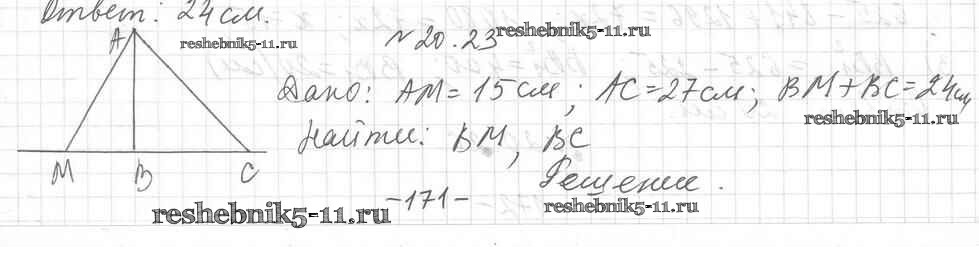 Ответ: 24 см.
reshebnik5-11.ru
№ 20.23 reshebnik5-11.ru
A
Дано: AM = 15 см; AC = 27 см; BM + BC = 24 см
reshebnik5-11.ru
Найти: BM, BC
M B C
Решение.
- 171 -
reshebnik5-11.ru
reshebnik5-11.ru